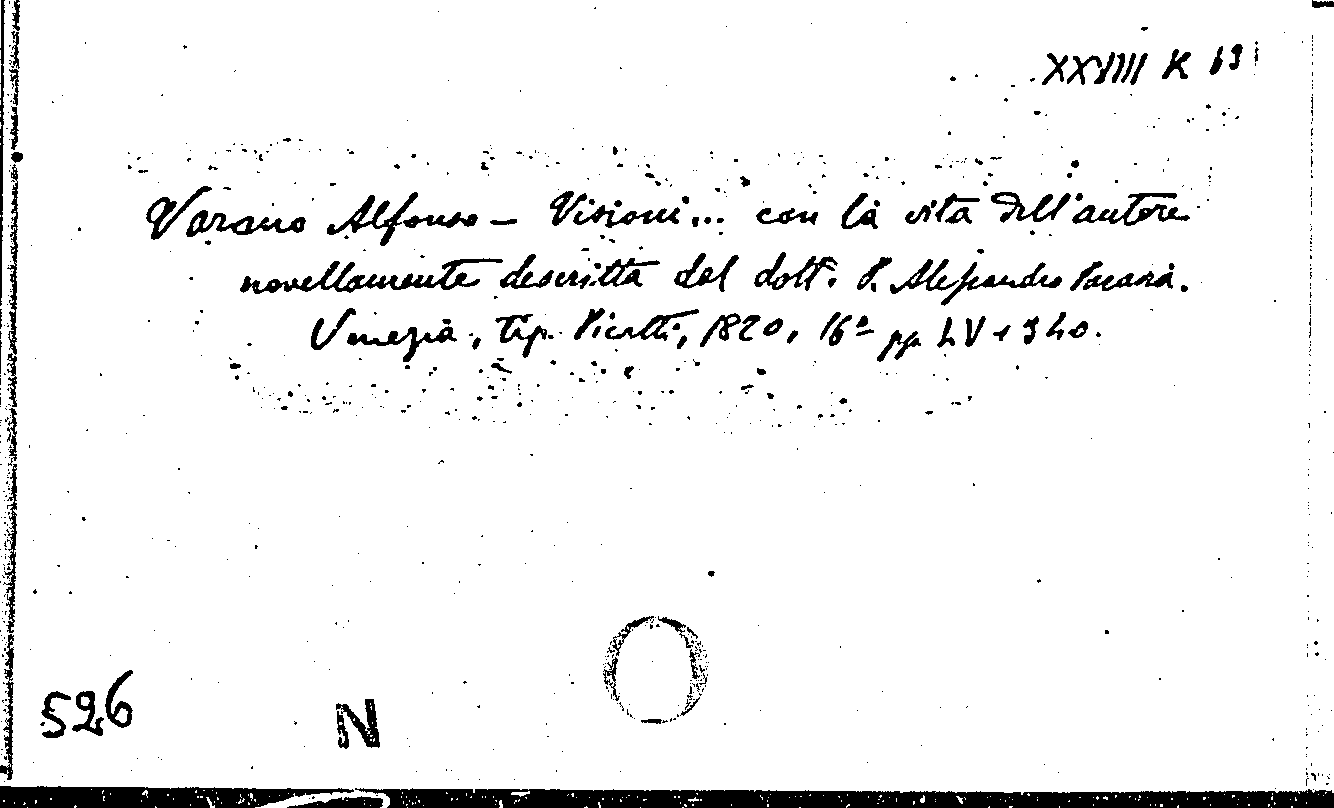 XXVIII K 13
Varano Alfonso – Visioni... con la vita dell'autore
novellamente descritta dal dott. P. Alessandro
Venezia, tip. Picotti, 1820, 16º pp. LV + 340.
526
N